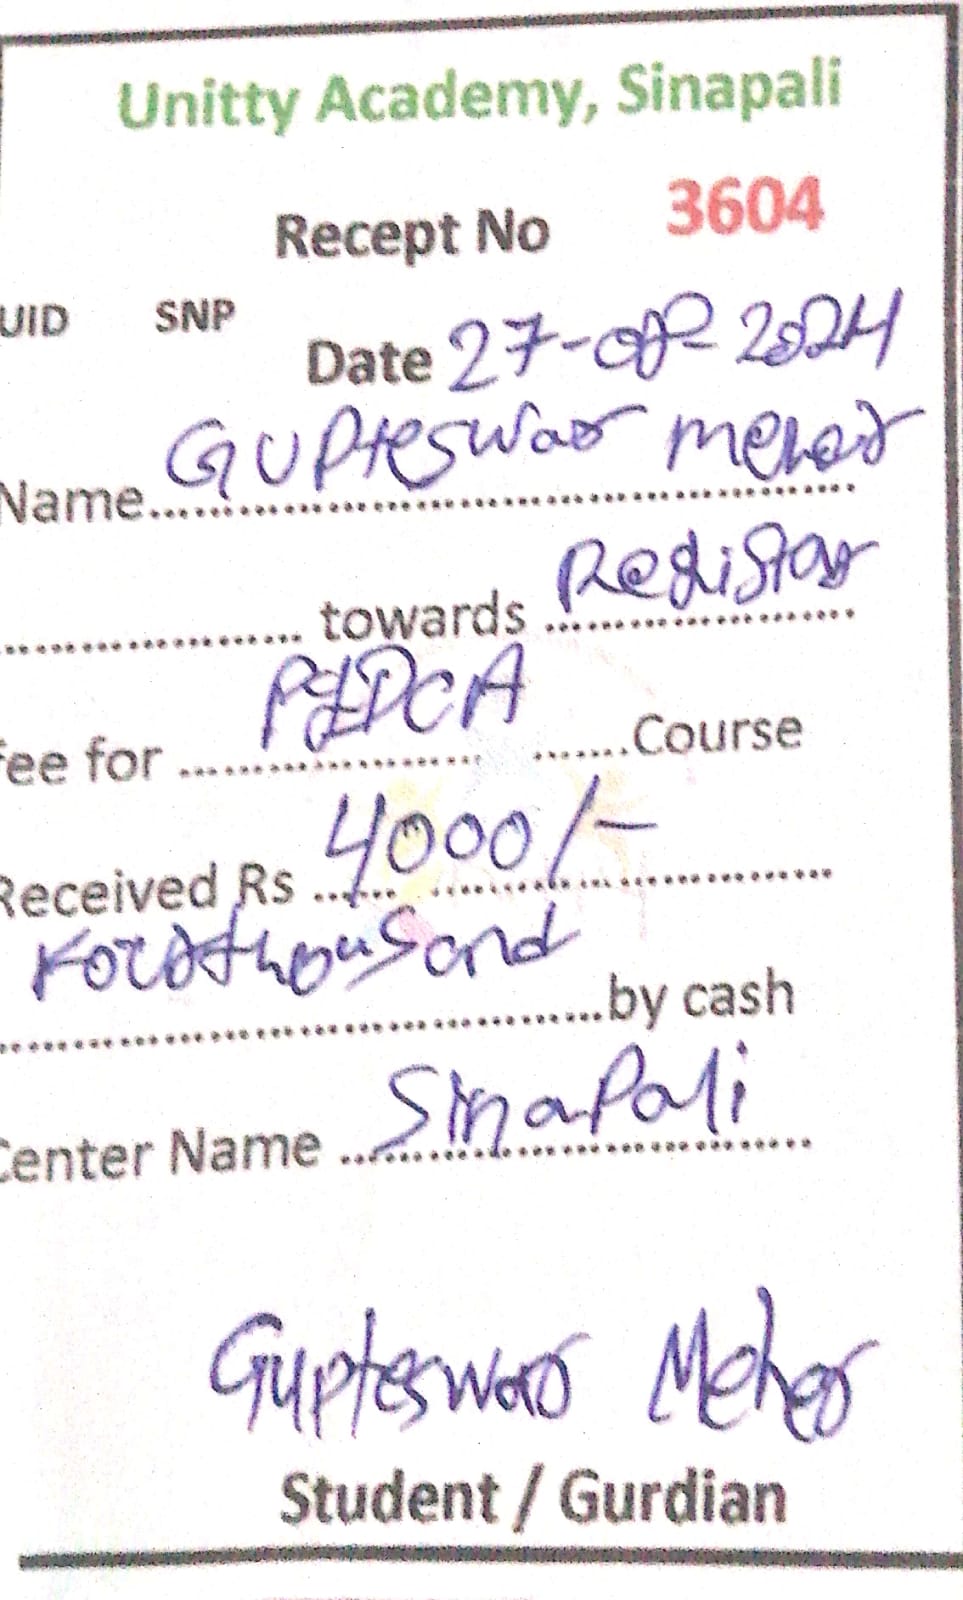 Unitty Academy, Sinapali
Recept No 3604
UID SNP
Date 27-08-2024
Name Gupteswar Meher
towards Register
fee for PGDCA Course
Received Rs 4000/-
thousand
by cash
Center Name Sinapali
Gupteswar Meher
Student / Gurdian